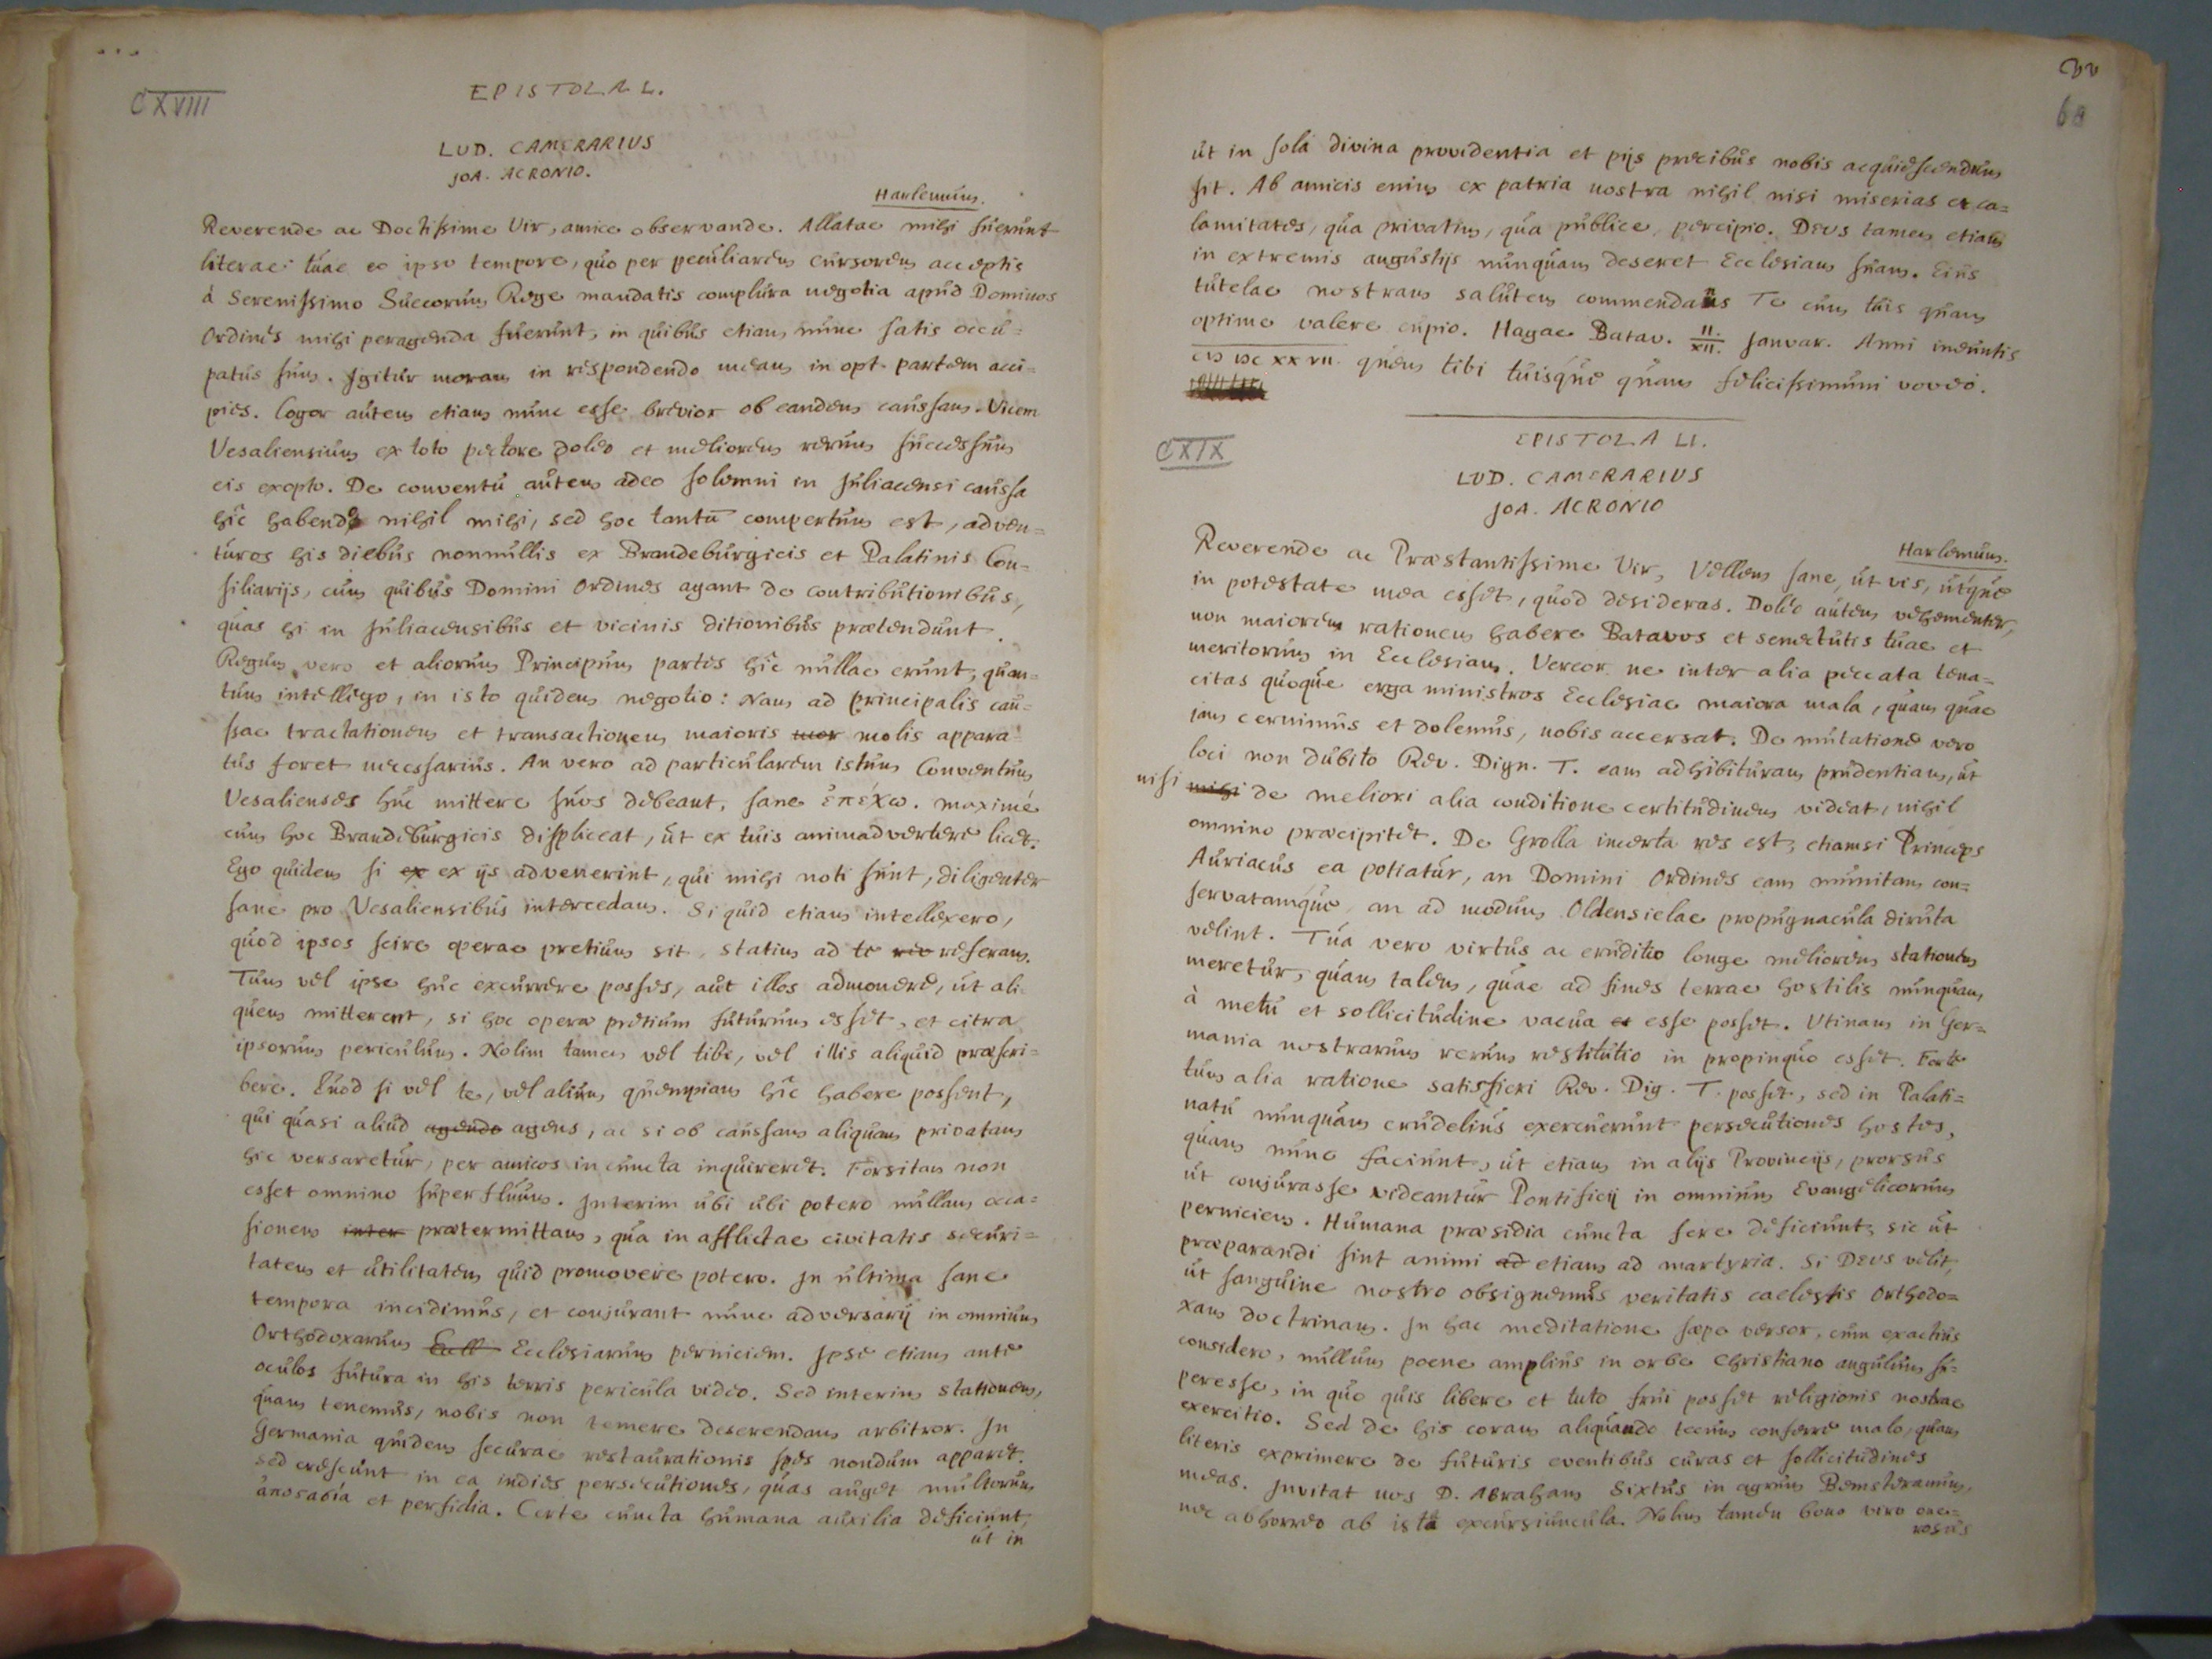 CXVIII
EPISTOLA L.
LUD. CAMERARIUS
JOA. ACRONIO.
Harlemum.
Reverende ac Doctissime Vir, amice observande. Allatae mihi fuerunt
literae tuae eo ipso tempore, quo per peculiarem cursorem acceptis
à Serenissimo Suecorum Rege mandatis complura negotia apud Dominos
Ordines mihi peragenda fuerunt, in quibus etiam nunc satis occu=
patus sum. Igitur moram in respondendo meam in opt. partem acci=
pies. Cogor autem etiam nunc esse brevior ob eandem caussam. Vicem
Vesaliensium ex toto pectore doleo et meliorem rerum successum
eis exopto. De conventu autem adeo solemni in Juliacensi caussa
hîc habendo nihil mihi, sed hoc tantū compertum est, adven=
turos his diebus nonnullis ex Brandeburgicis et Palatinis Con=
siliarijs, cum quibus Domini Ordines agant de contributionibus,
quas hi in Juliacensibus et vicinis ditionibus praetendunt.
Regum vero et aliorum Principum partes hîc nullae erunt, quan=
tum intelligo, in isto quidem negotio: Nam ad principalis cau=
ssae tractationem et transactionem maioris mor molis appara=
tus foret necessarius. An vero ad particularem istum Conventum
Vesalienses huc mittere suos debeant, sane ἐπέχω. maximé
cum hoc Brandeburgicis displiceat, ut ex tuis animadvertere licet.
Ego quidem si ex ex ijs advenerint, qui mihi noti sunt, diligenter
sane pro Vesaliensibus intercedam. Si quid etiam intellexero,
quod ipsos scire operae pretium sit, statim ad te re referam.
Tum vel ipse huc excurrere posses, aut illos admonere, ut ali=
quem mitterent, si hoc operae pretium futurum esset, et citra
ipsorum periculum. Nolim tamen vel tibi, vel illis aliquid praescri=
bere. Quod si vel te, vel alium quempiam hîc habere possent,
qui quasi aliud agendo agens, ac si ob caussam aliquam privatam
hic versaretur, per amicos in cuncta inquireret. Forsitan non
esset omnino superfluum. Interim ubi ubi potero nullam occa=
sionem inter praetermittam, qua in afflictae civitatis securi=
tatem et utilitatem quid promovere potero. In ultima sane
tempora incidimus, et conjurant nunc adversarij in omnium
Orthodoxarum Eccll Ecclesiarum perniciem. Ipse etiam ante
oculos futura in his terris pericula video. Sed interim stationem,
quam tenemus, nobis non temere deserendam arbitror. In
Germania quidem securae restaurationis spes nondum apparet.
sed crescunt in ea indies persecutiones, quas auget multorum
et perfidia. Certe cuncta humana auxilia deficiunt,
ut in
60
ut in sola divina providentia et pijs precibus nobis acquiescendum
sit. Ab amicis enim ex patria nostra nihil nisi miserias et ca=
lamitates, qua privatim, qua publice, percipio. Deus tamen etiam
in extremis angustijs nunquam deseret Ecclesiam suam. Eius
tutelae nostram salutem commendans Te cum tuis quam
optime valere cupio. Hagae Batav. II./XII. Januar. Anni ineuntis
CIƆ IƆC XXVII. quem tibi tuisque quam felicissimum voveo.
CXIX
EPISTOLA LI.
LUD. CAMERARIUS
JOA. ACRONIO
Harlemum.
Reverende ac Praestantissime Vir, Vellem sane, ut vis, utque
in potestate mea esset, quod desideras. Doleo autem vehementer,
non maiorem rationem habere Batavos et senectutis tuae et
meritorum in Ecclesiam. Vereor ne inter alia peccata tena=
citas quoque erga ministros Ecclesiae maiora mala, quam quae
jam cernimus et dolemus, nobis accersat. De mutatione vero
loci non dubito Rev. Dign. T. eam adhibituram prudentiam, ut
nisi mihi de meliori alia conditione certitudinem videat, nihil
omnino praecipitet. De Grolla incerta res est, etiamsi Princeps
Auriacus ea potiatur, an Domini Ordines eam munitam con=
servatamque, an ad modum Oldensielae propugnacula diruta
velint. Tua vero virtus ac eruditio longe meliorem stationem
meretur, quam talem, quae ad fines terrae hostilis nunquam
à metu et sollicitudine vacua et esse posset. Utinam in Ger=
mania nostrarum rerum restitutio in propinquo esset. Forte
tum alia ratione satisfieri Rev. Dig. T. posset, sed in Palati=
natu nunquam crudelius exercuerunt persecutiones hostes,
quam nunc faciunt, ut etiam in alijs Provincijs, prorsus
ut conjurasse videantur Pontificij in omnium Evangelicorum
perniciem. Humana praesidia cuncta fere deficiunt, sic ut
praeparandi sint animi ad etiam ad martyria. Si Deus velit,
ut sanguine nostro obsignemus veritatis caelestis Orthodo=
xam doctrinam. In hac meditatione saepe versor, cum exactius
considero, nullum poene amplius in orbe Christiano angulum su=
peresse, in quo quis libere et tuto frui posset religionis nostrae
exercitio. Sed de his coram aliquando tecum conferre malo, quam
literis exprimere de futuris eventibus curas et sollicitudines
meas. Invitat nos D. Abraham Sixtus in agrum Bemsteranum,
nec abhorreo ab ista excursiuncula. Nolim tamen bono viro one=
rosus